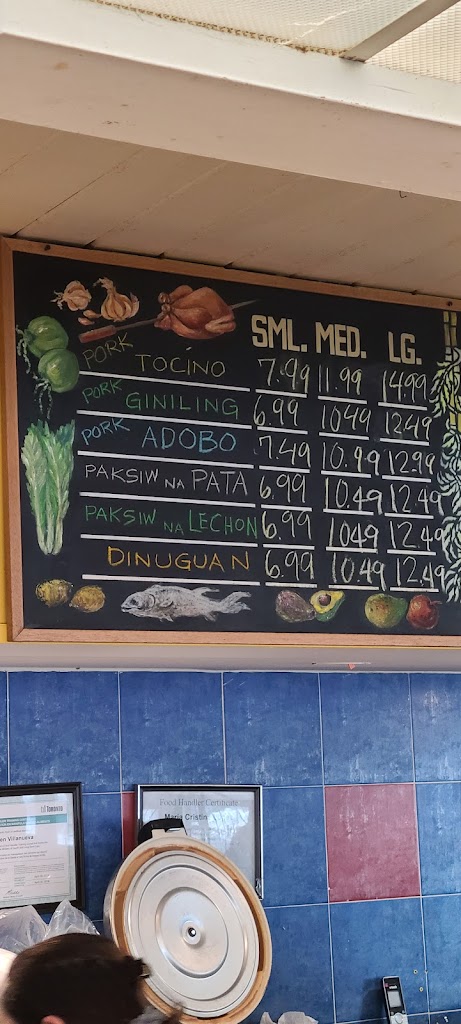 SML. MED. LG.
PORK TOCINO 7.99 11.99 14.99
PORK GINILING 6.99 1049 1249
PORK ADOBO 7.49 10.99 12.99
PAKSIW NA PATA 6.99 10.49 12.49
PAKSIW NA LECHON 6.99 1049 12.49
DINUGUAN 6.99 10.49 12.49
TORONTO
Villanueva
Food Handler Certificate
Maria Cristin